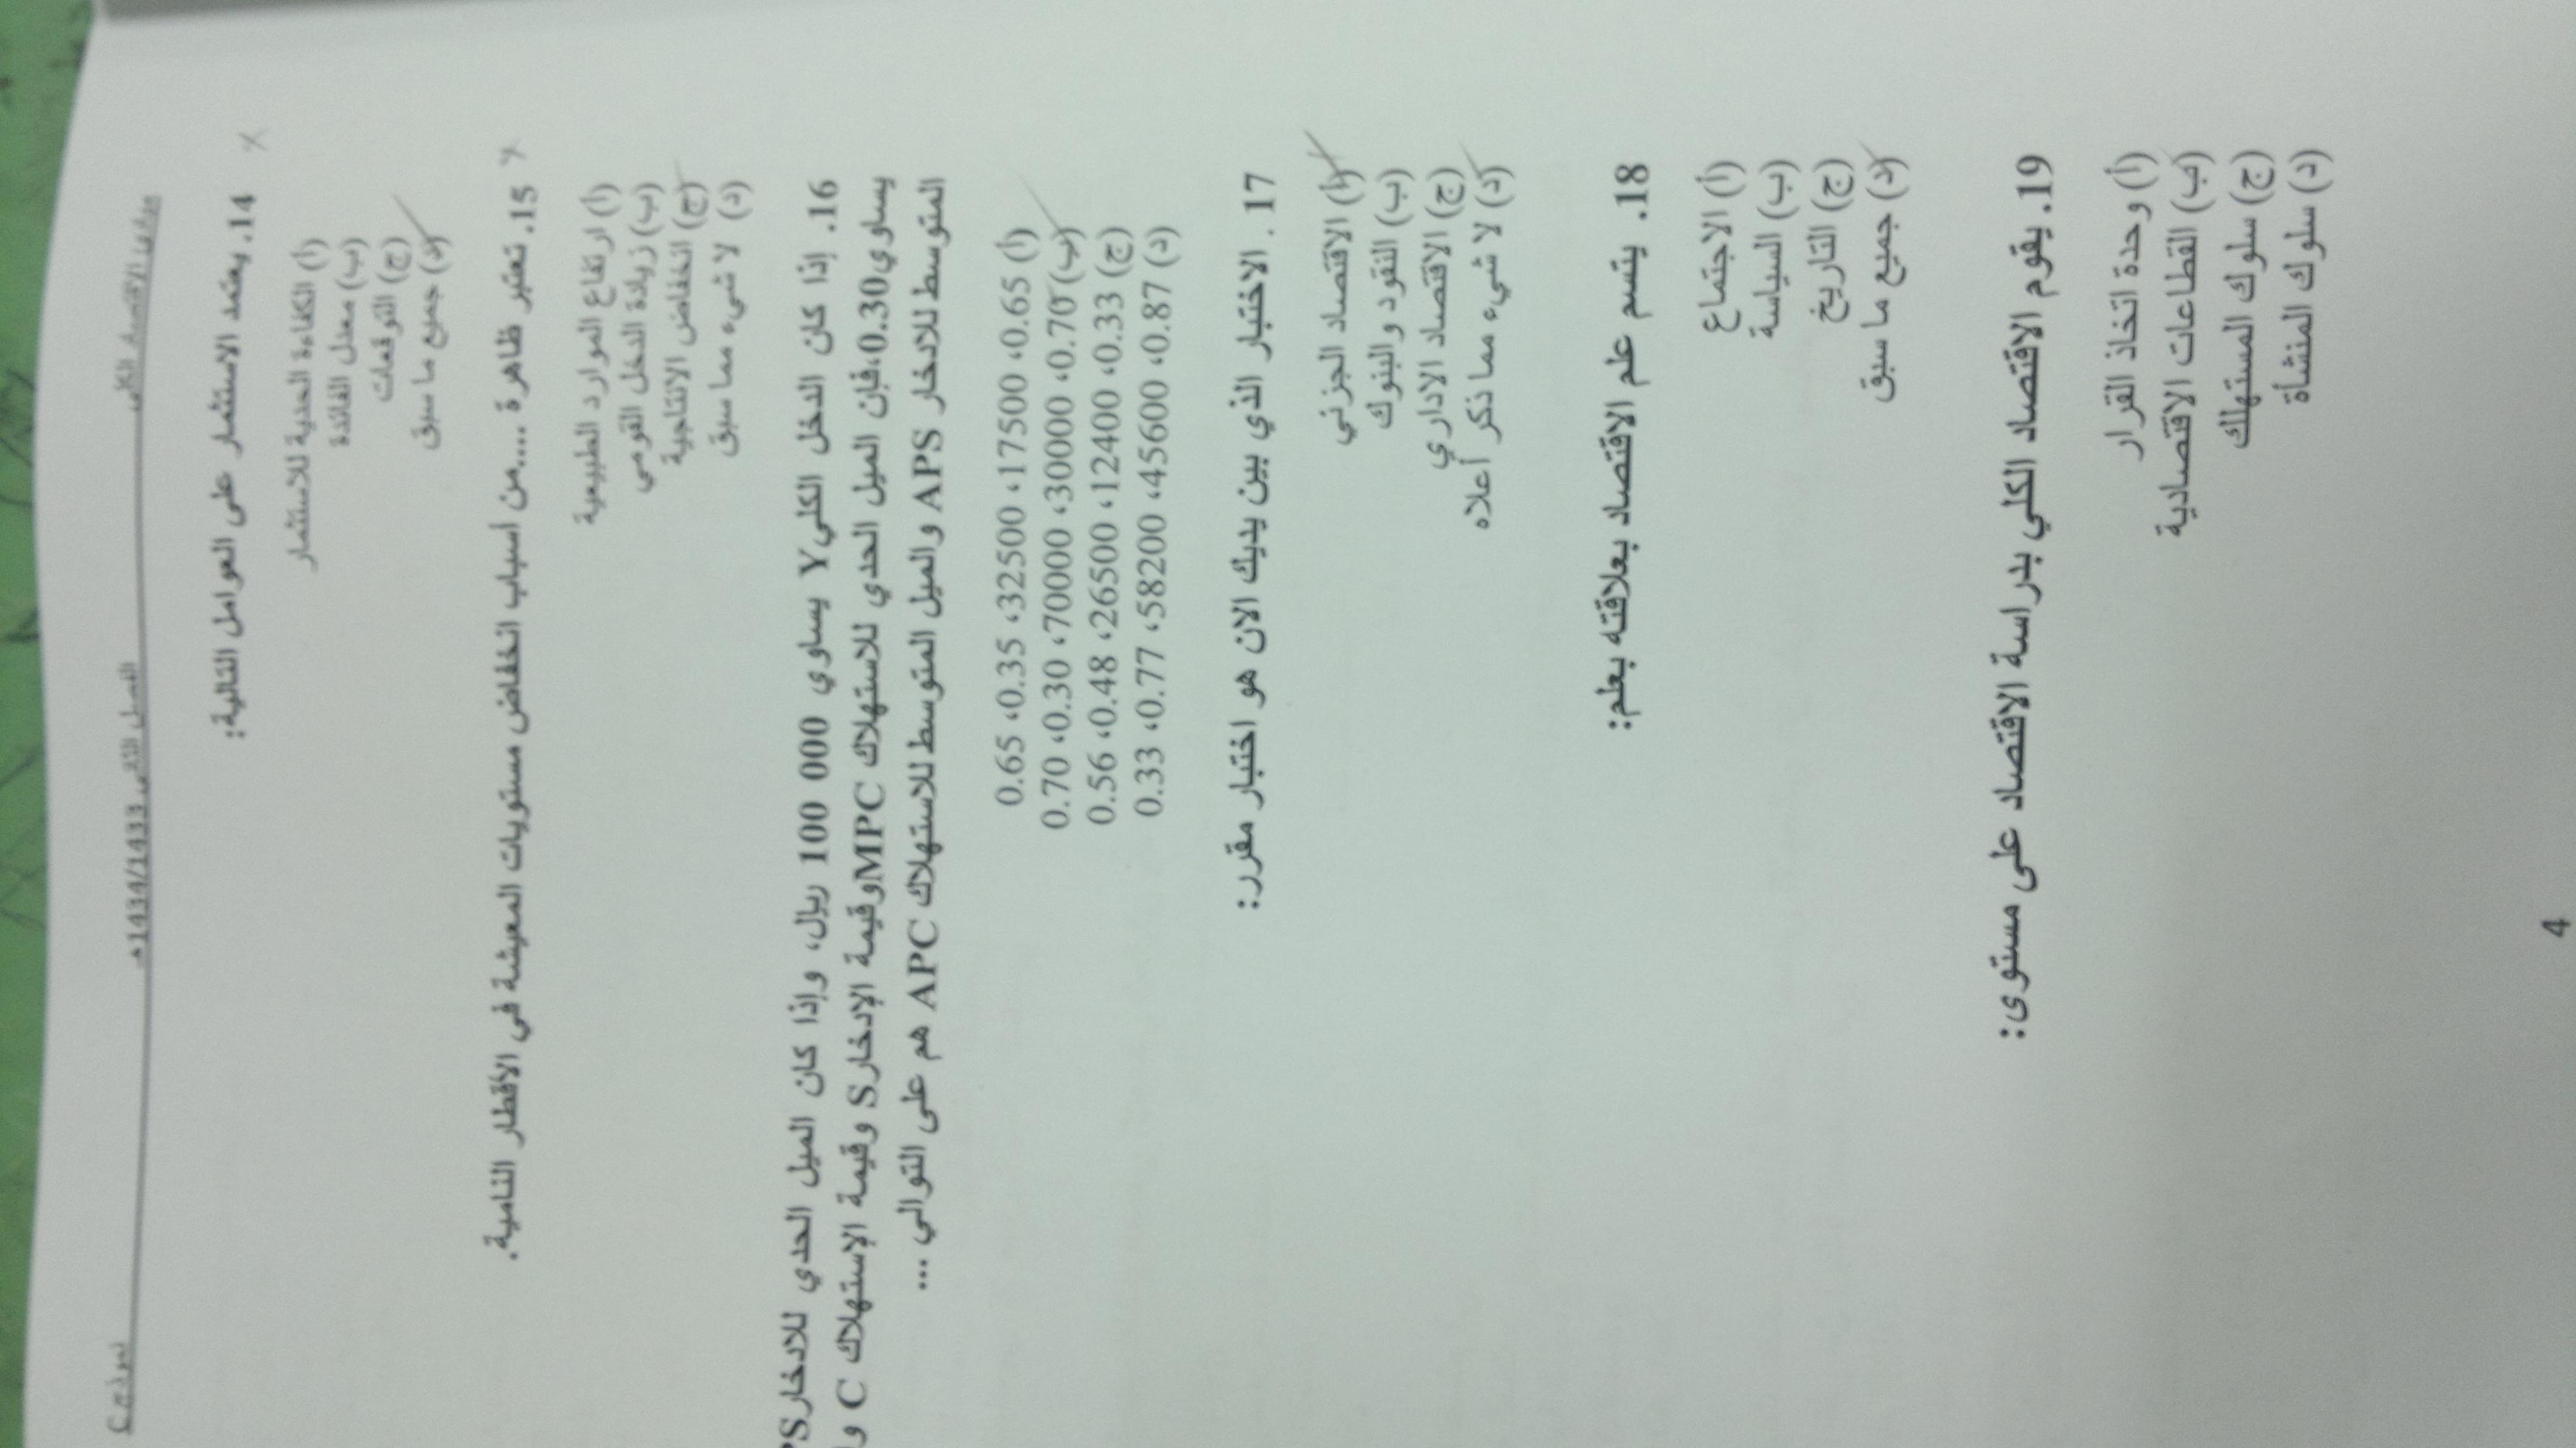 مبادئ الاقتصاد الكلي الفصل الثاني 1434/1433هـ نموذج C
14. يعتمد الاستثمار على العوامل التالية:
(أ) الكفاءة الحدية للاستثمار
(ب) معدل الفائدة
(ج) التوقعات
(د) جميع ما سبق
15. تعتبر ظاهرة ....من أسباب انخفاض مستويات المعيشة في الأقطار النامية.
(أ) ارتفاع الموارد الطبيعية
(ب) زيادة الدخل القومي
(ج) انخفاض الانتاجية
(د) لا شيء مما سبق
16. إذا كان الدخل الكلي Y يساوي 000 100 ريال، وإذا كان الميل الحدي للادخار PS
يساوي 0.30،فإن الميل الحدي للاستهلاك MPC وقيمة الإدخار S وقيمة الإستهلاك C وا
المتوسط للادخار APS والميل المتوسط للاستهلاك APC هم على التوالي ...
(أ) 0.65، 17500، 32500، 0.35، 0.65
(ب) 0.70، 30000، 70000، 0.30، 0.70
(ج) 0.33، 12400، 26500، 0.48، 0.56
(د) 0.87، 45600، 58200، 0.77، 0.33
17. الاختبار الذي بين يديك الان هو اختبار مقرر:
(أ) الاقتصاد الجزئي
(ب) النقود والبنوك
(ج) الاقتصاد الاداري
(د) لا شيء مما ذكر أعلاه
18. يتسم علم الاقتصاد بعلاقته بعلم:
(أ) الاجتماع
(ب) السياسة
(ج) التاريخ
(د) جميع ما سبق
19. يقوم الاقتصاد الكلي بدراسة الاقتصاد على مستوى:
(أ) وحدة اتخاذ القرار
(ب) القطاعات الاقتصادية
(ج) سلوك المستهلك
(د) سلوك المنشأة
4